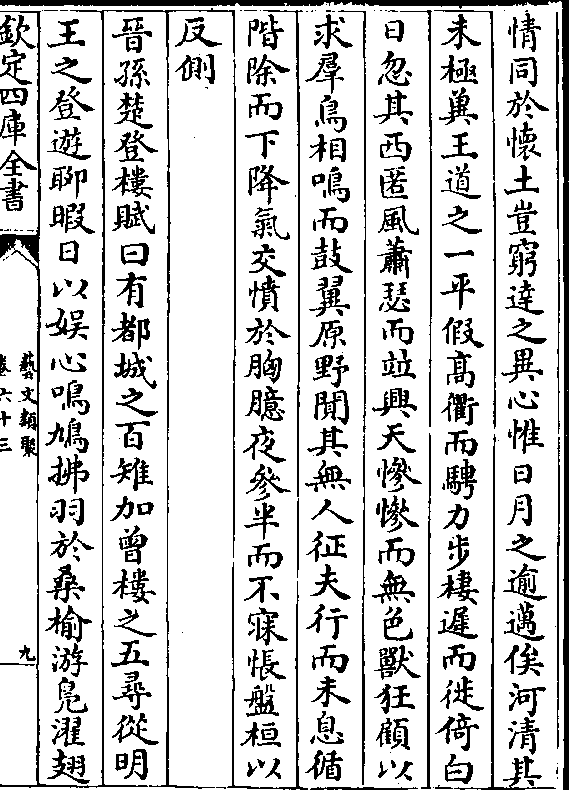 情同於懷土豈窮達之異心惟日月之逾邁俟河清其
未極冀王道之一平假髙衢而騁力步棲遲而徙倚白
日忽其西匿風蕭瑟而竝興天慘慘而無色獸狂顧以
求羣鳥相鳴而鼓翼原野闃其無人征夫行而未息循
階除而下降氣交憤於胸臆夜參半而不寐悵盤桓以
反側
晉孫楚登樓賦曰有都城之百雉加曾樓之五尋從明
王之登遊聊暇日以娱心鳴鳩拂羽於桑榆游鳬濯翅
欽定四庫全書
藝文類聚
卷六十三
九